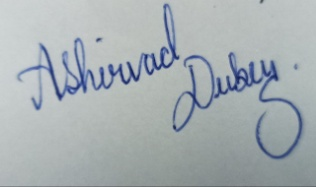 Ashirvad
Dubey.